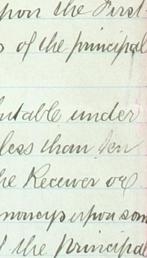 upon the First
of the principal
utable under
less than ten
the Receiver or
moneys upon som
the principal